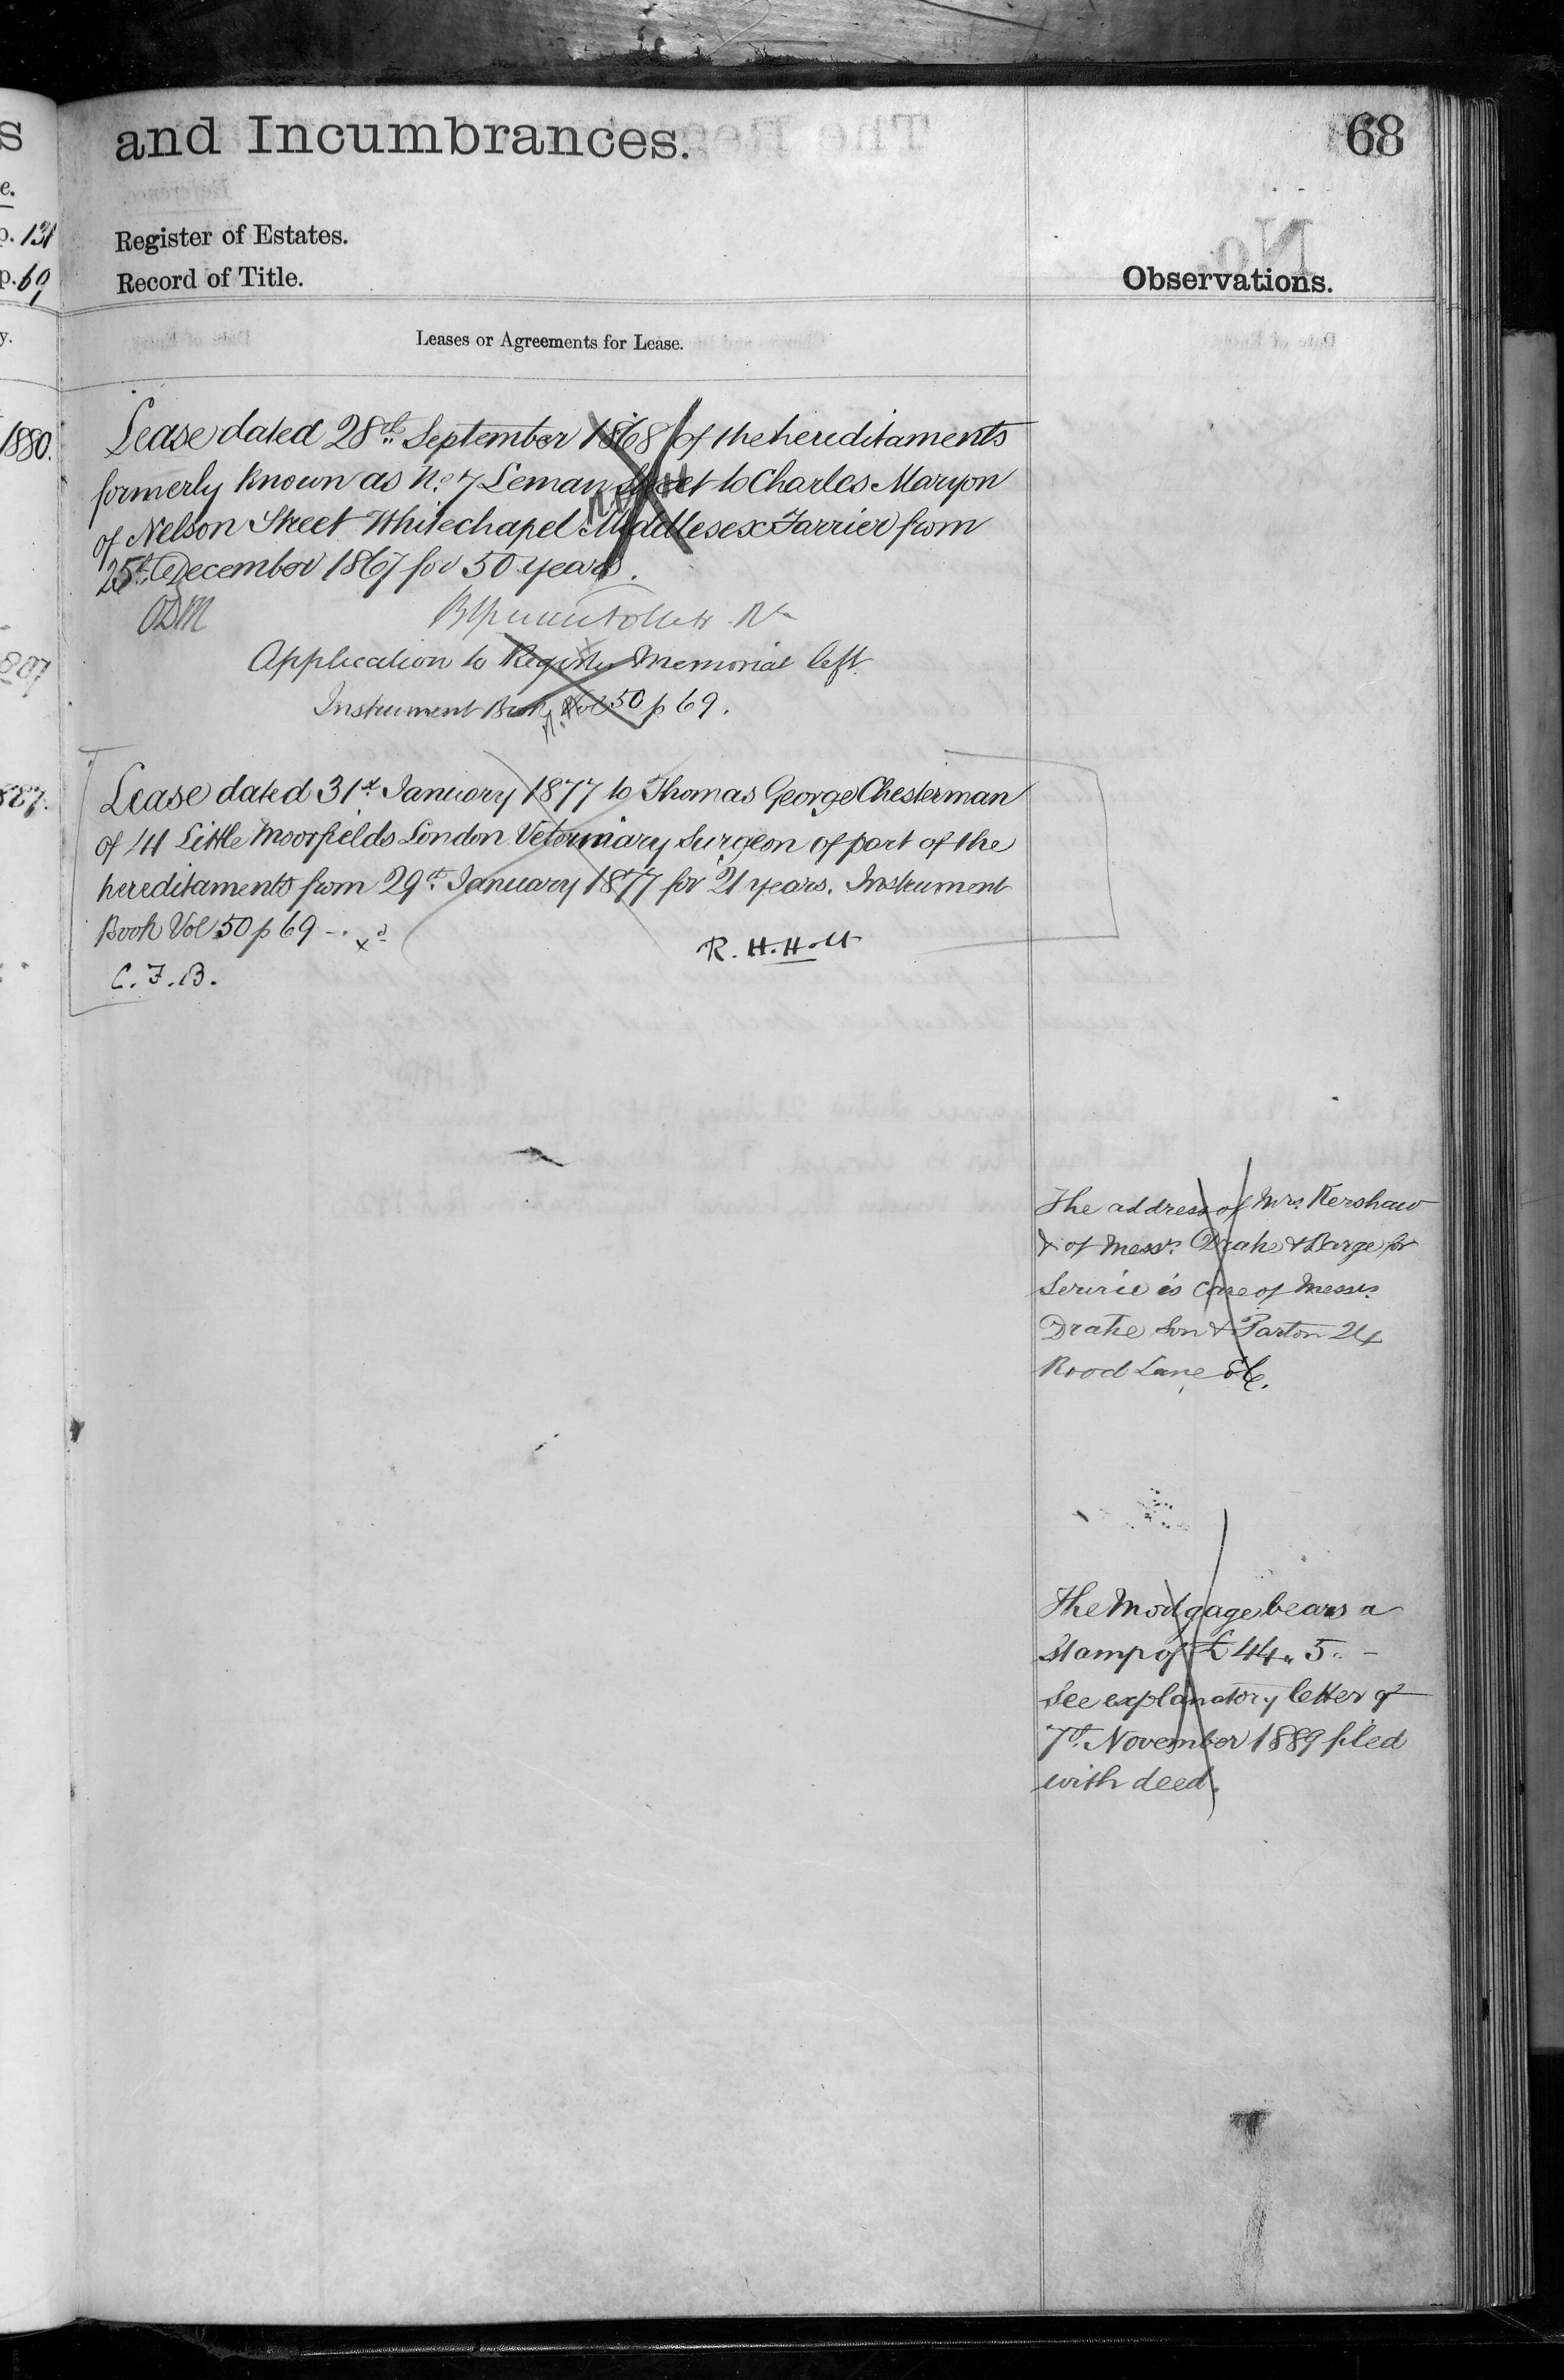 and Incumbrances.
68
Register of Estates.
Record of Title.
Observations.
Leases or Agreements for Lease.
p. 131
p. 69
1880.
1887.
Lease dated 28th September 1868 of the hereditaments
formerly known as No. 7 Leman Street to Charles Maryon
of Nelson Street Whitechapel Middlesex Farrier from
25th December 1867 for 50 years.
ODM
Application to Register Memorial left
Instrument Book Vol 50 p 69.
Lease dated 31st January 1877 to Thomas George Chesterman
of 41 Little Moorfields London Veterinary Surgeon of part of the
hereditaments from 29th January 1877 for 21 years. Instrument
Book Vol 50 p 69 -
R. H. Holt
C. F. B.
The address of Mrs. Kershaw
& of Messrs. Drake & Barge for
Service is care of Messrs.
Drake Son & Parton 24
Rood Lane EC.
The Mortgage bears a
Stamp of £44 " 5 " -
See explanatory letter of
7th November 1889 filed
with deed.